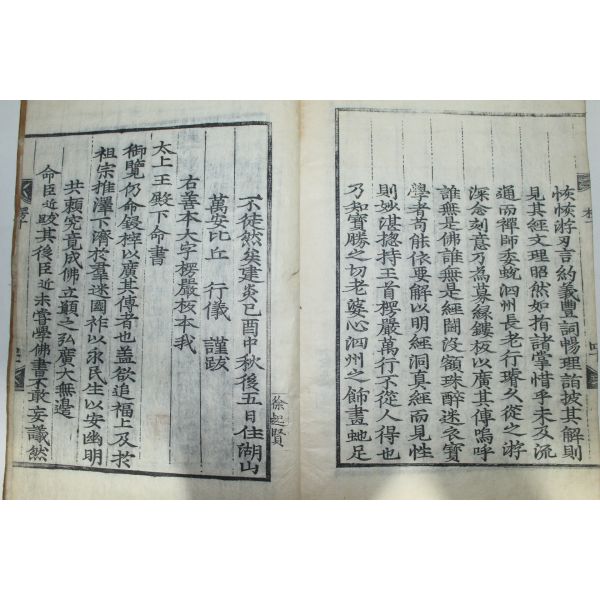 恢恢游刃言約義豐詞暢理詣披其解則
見其經文理昭然如指諸掌惜乎未及流
通而禪師委蛻泗州長老行璿久從之游
深念刻意乃為募緣鏤板以廣其傳嗚呼
誰無是佛誰無是經闇沒額珠醉迷衣寶
學者苟能依要解以明經洞真經而見性
則妙湛揔持王首楞嚴萬行不從人得也
乃知寶勝之切老婆心泗州之飾畫虵足
不徒然矣建炎己酉中秋後五日住湖山
萬安比丘 行儀 謹跋
右善本大字楞嚴板本我
太上王殿下命書
御覽仍命鋟梓以廣其傳者也盖欲追福上及於
祖宗推澤下濟於羣迷國祚以永民生以安幽明
共賴究竟成佛立願之弘廣大無邊
命臣近跋其後臣近未嘗學佛書不敢妄議然
徐起賢